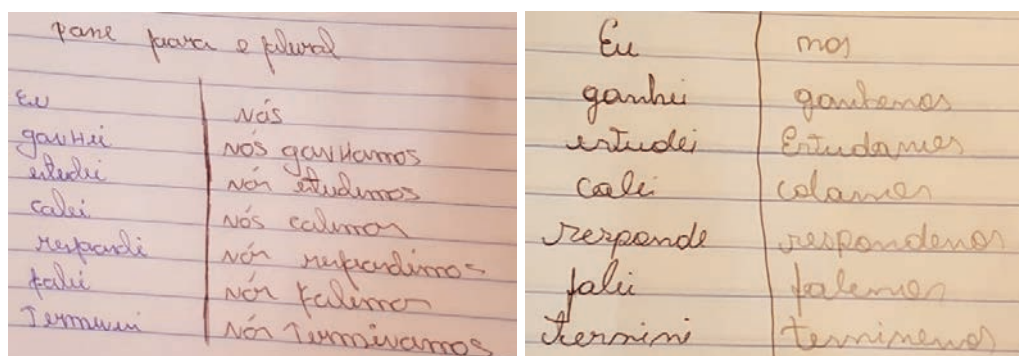 pane para o plural
Eu | nós
gauHei | nós gavHamos
estudei | nós etudimos
calei | nós calimos
respondi | nós respondimos
falei | nós falimos
Terminei | nós Terminamos
Eu | nos
ganhei | ganhemos
estudei | Estudamos
calei | calamos
responde | respondemos
falei | falemos
termini | terminemos